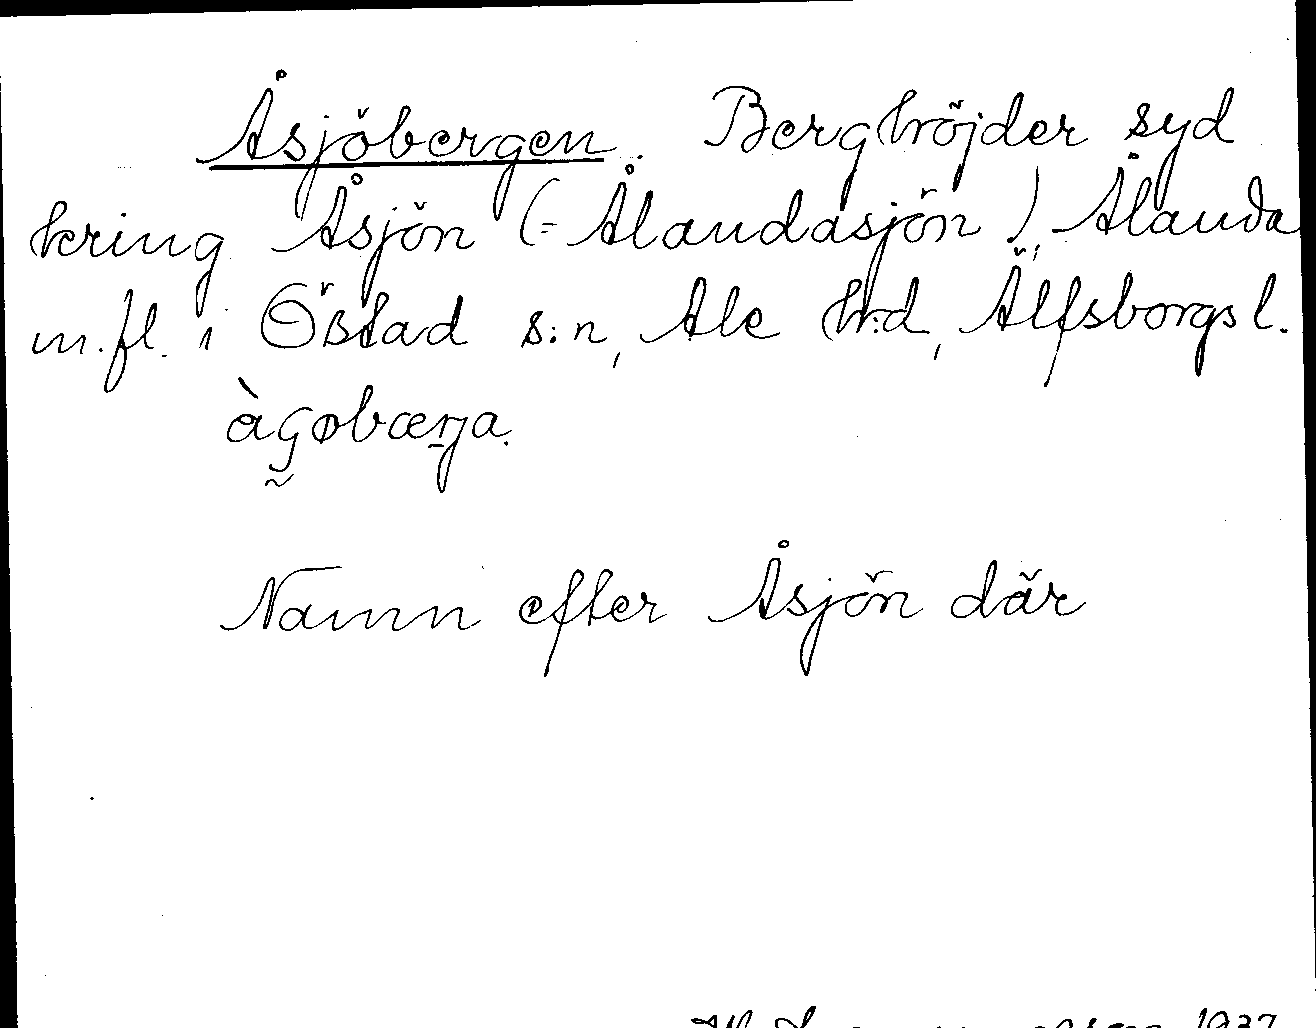 Åsjöbergen. Berghöjder syd
kring Åsjön (= Ålandasjön), Ålanda
m.fl. i Östad s:n, Ale h:d, Älfsborgs l.
àɧøbærja.
Namn efter Åsjön där
1937